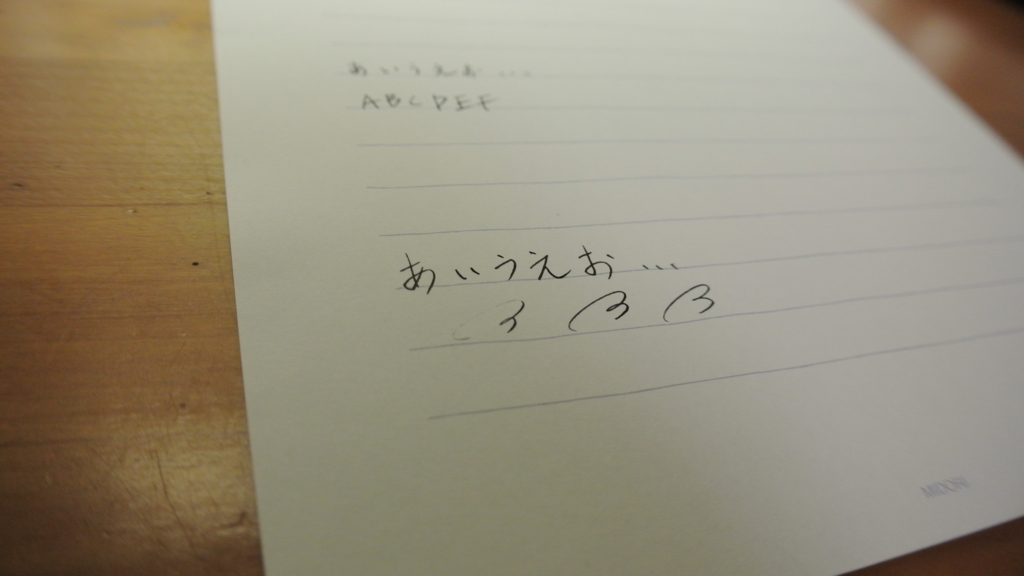 あいうえお...
ABCDEF
あいうえお...
MIDORI